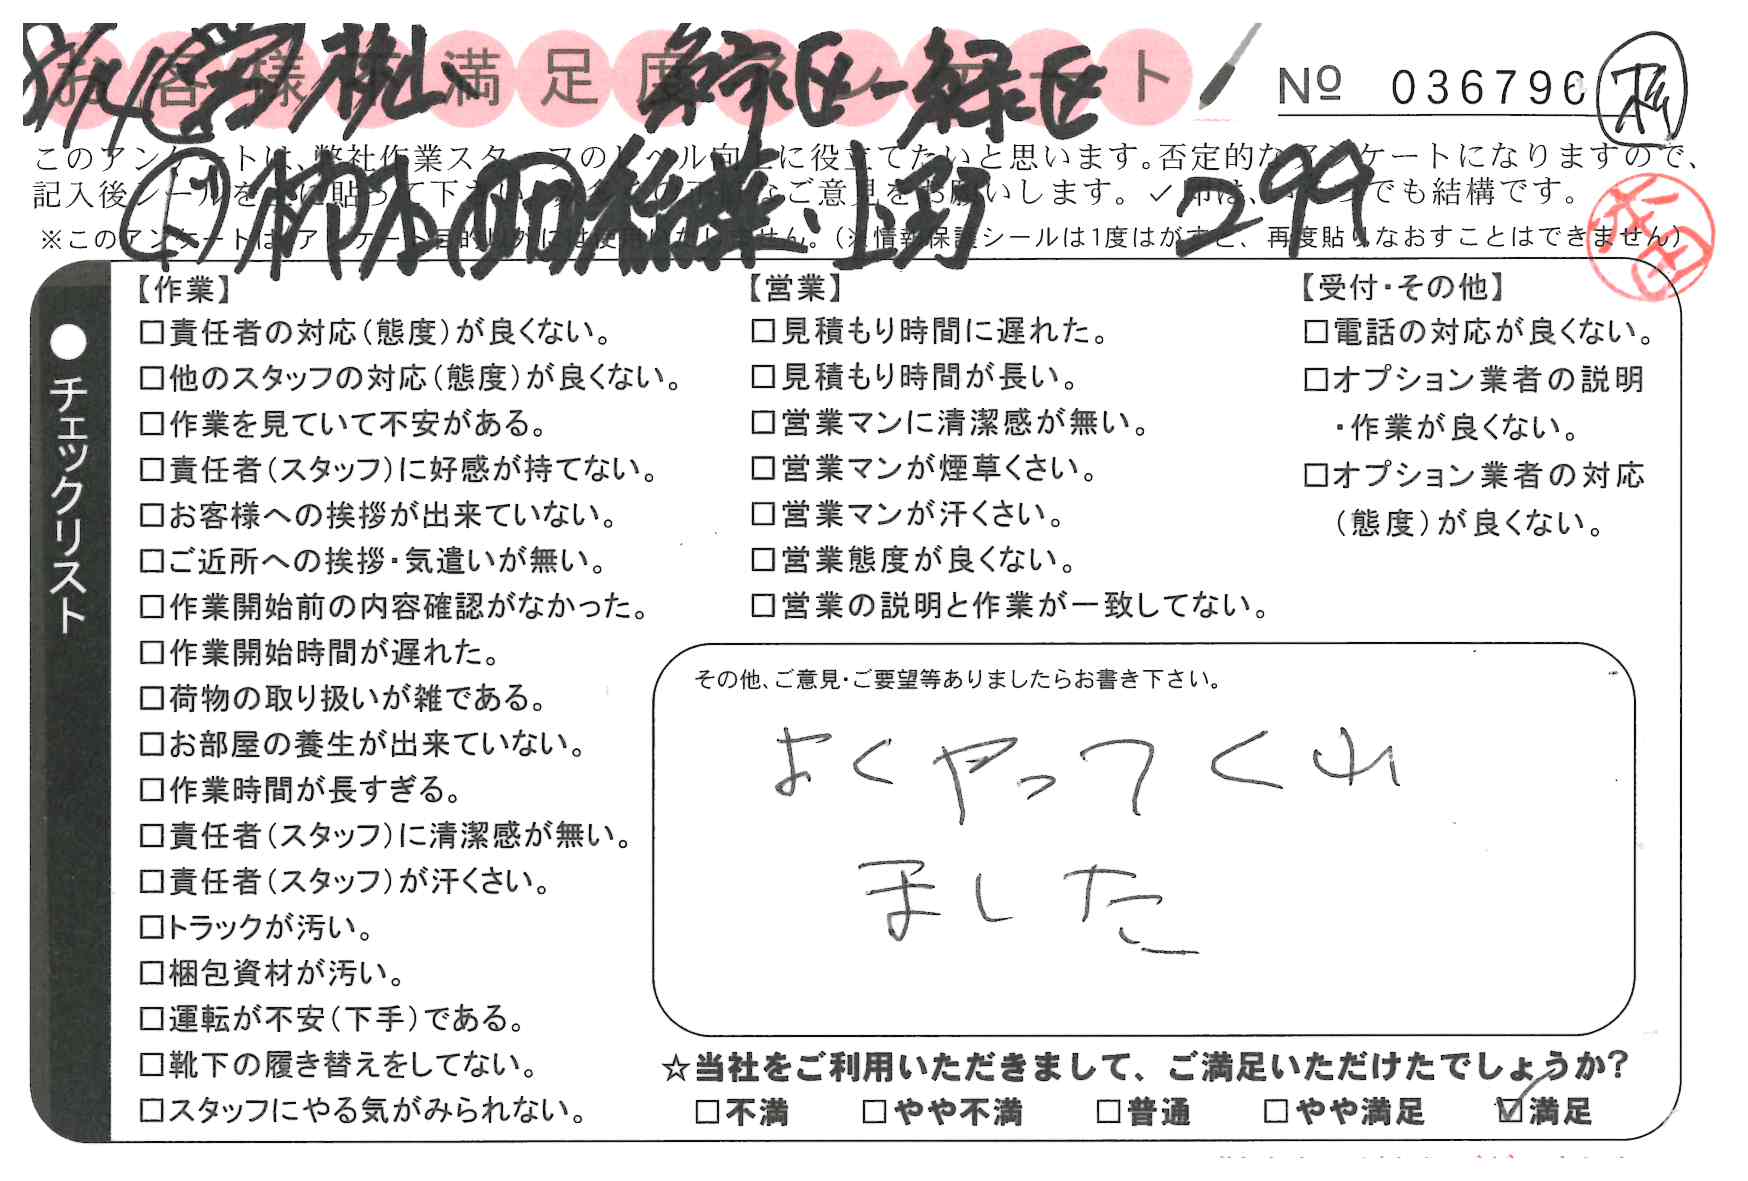 お客様不満足度アンケート
№ 036796
緑区
299
このアンケートは、弊社作業スタッフのレベル向上に役立てたいと思います。否定的なアンケートになりますので、
記入後シールを上に貼って下さい。ご意見をお願いします。✓印は、でも結構です。
※このアンケートは、アンケート目的以外には使用いたしません。(※情報保護シールは1度はがすと、再度貼りなおすことはできません)
●チェックリスト
【作業】
□責任者の対応(態度)が良くない。
□他のスタッフの対応(態度)が良くない。
□作業を見ていて不安がある。
□責任者(スタッフ)に好感が持てない。
□お客様への挨拶が出来ていない。
□ご近所への挨拶・気遣いが無い。
□作業開始前の内容確認がなかった。
□作業開始時間が遅れた。
□荷物の取り扱いが雑である。
□お部屋の養生が出来ていない。
□作業時間が長すぎる。
□責任者(スタッフ)に清潔感が無い。
□責任者(スタッフ)が汗くさい。
□トラックが汚い。
□梱包資材が汚い。
□運転が不安(下手)である。
□靴下の履き替えをしてない。
□スタッフにやる気がみられない。
【営業】
□見積もり時間に遅れた。
□見積もり時間が長い。
□営業マンに清潔感が無い。
□営業マンが煙草くさい。
□営業マンが汗くさい。
□営業態度が良くない。
□営業の説明と作業が一致してない。
【受付・その他】
□電話の対応が良くない。
□オプション業者の説明
・作業が良くない。
□オプション業者の対応
(態度)が良くない。
その他、ご意見・ご要望等ありましたらお書き下さい。
よくやってくれ
ました
☆当社をご利用いただきまして、ご満足いただけたでしょうか?
□不満 □やや不満 □普通 □やや満足 ☑満足